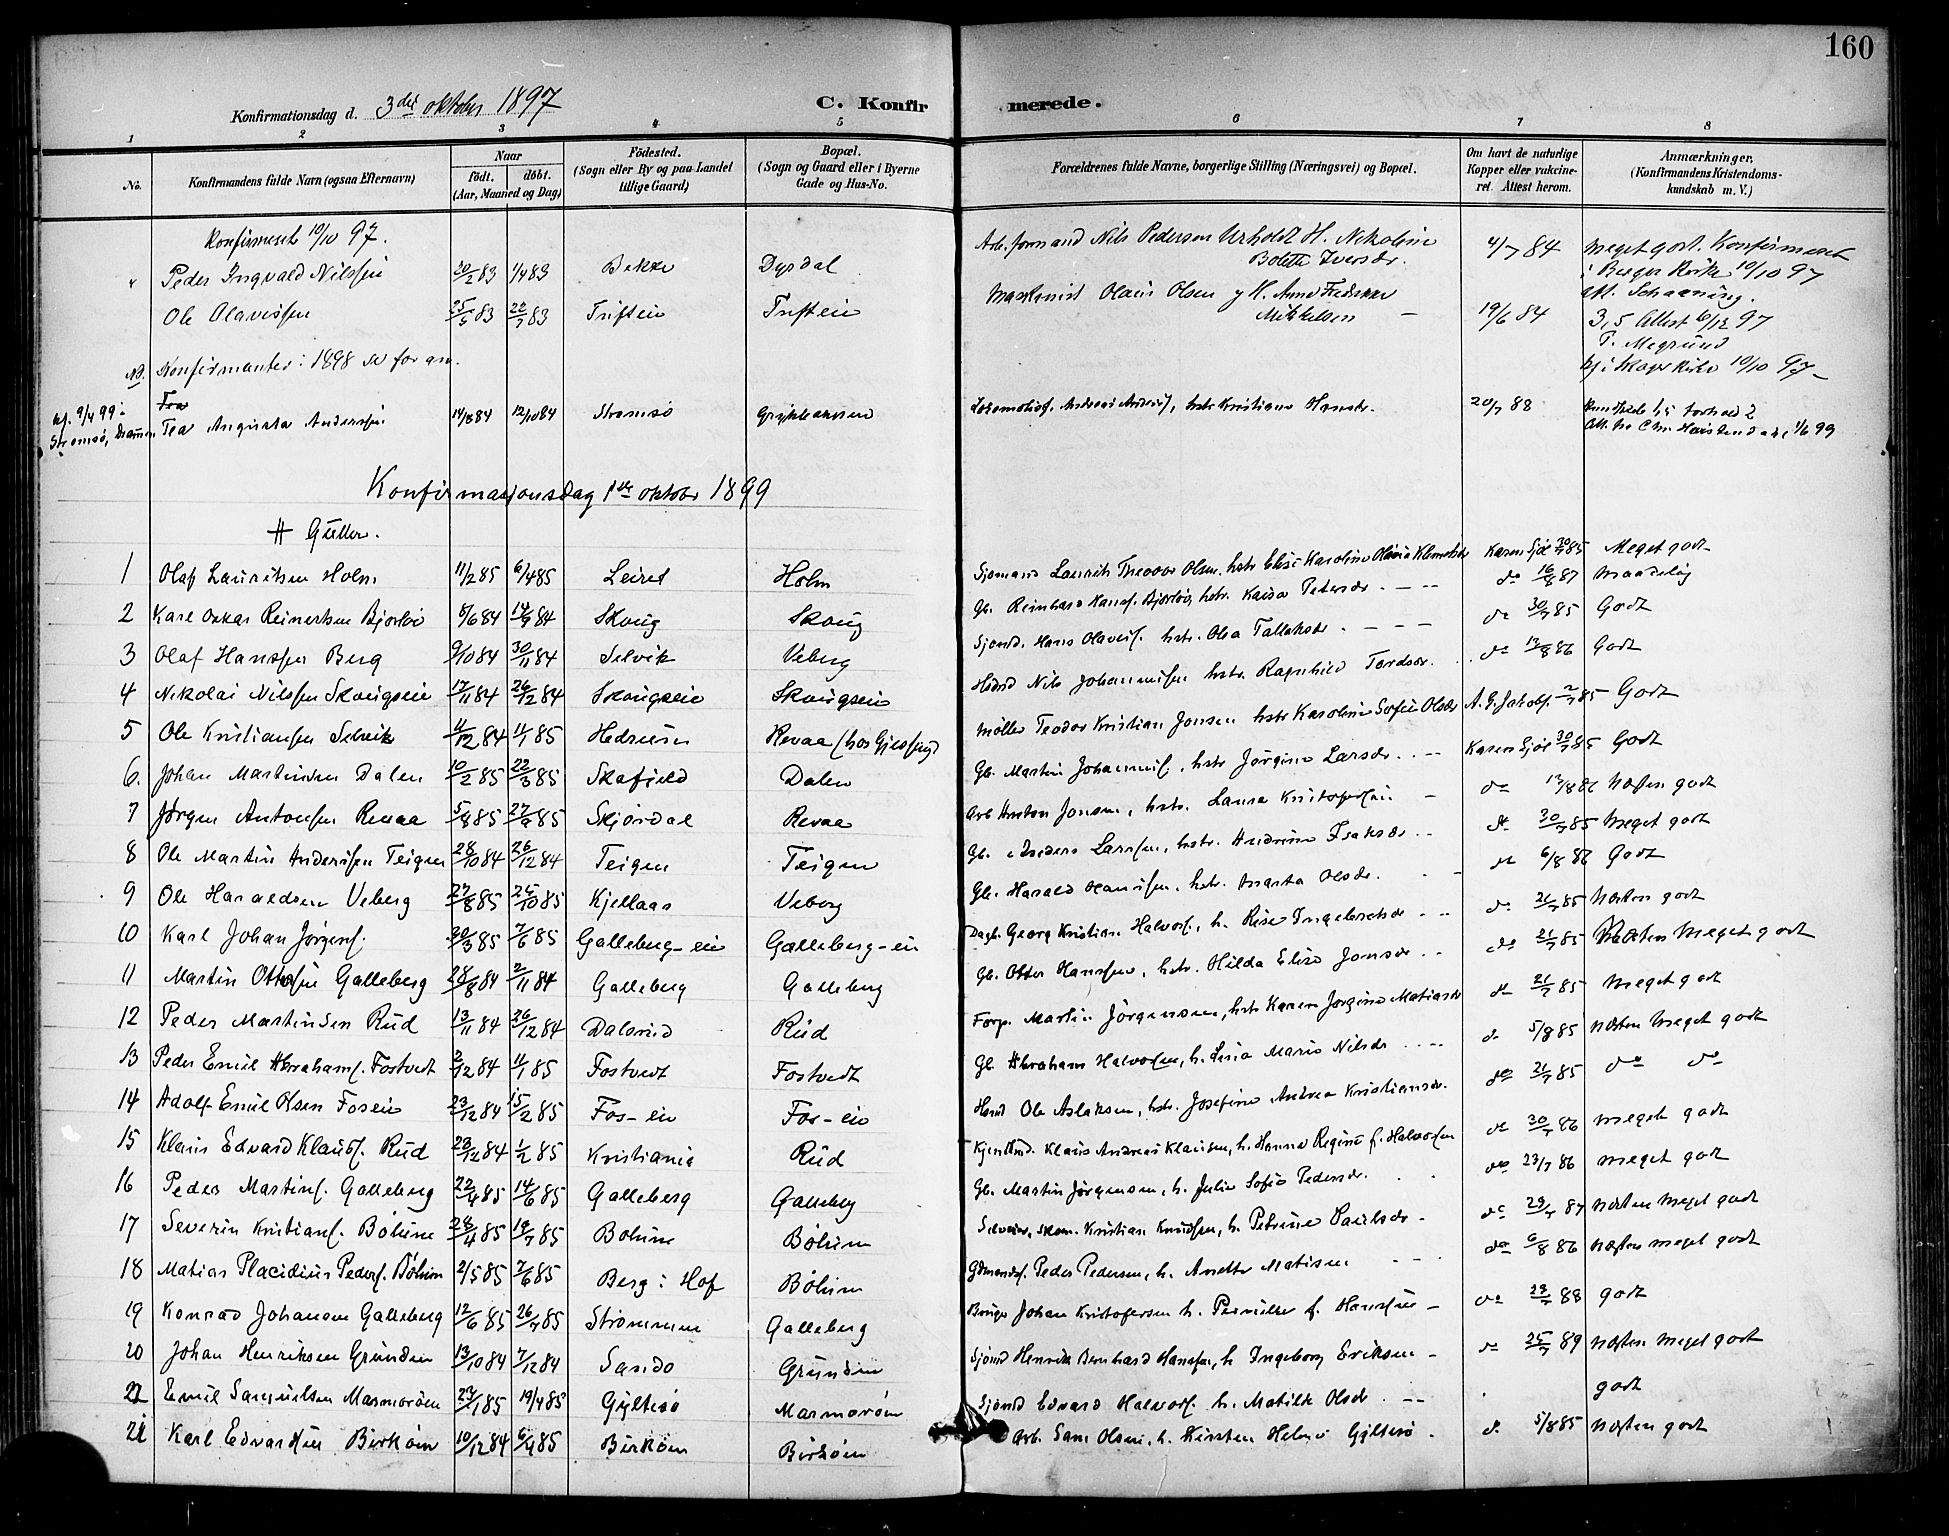 160
Konfirmationsdag d. 3die oktober 1897 C. Konfirmerede.
1 2 3 4 5 6 7 8
No. Konfirmandens fulde Navn (ogsaa Efternavn) Naar født. døbt. (Aar, Maaned og Dag) Fødested. (Sogn eller By og paa Landet tillige Gaard) Bopæl. (Sogn og Gaard eller i Byerne Gade og Hus-No. Forældrenes fulde Navne, borgerlige Stilling (Næringsvei) og Bopæl. Om havt de naturlige Kopper eller vakcineret. Attest herom. Anmærkninger, (Konfirmandens Kristendomskundskab m. V.)
Konfirmeret 10/10 97.
Peder Ingvald Nilssen 20/2 83 1/4 83 Bekke Dysdal Arb. formand Nils Pedersen H. Nikoline Bolette Iversdr. 4/7 84 Meget godt. Konfirmeret i Berger Kirke 10/10 97 att. Schaaning.
Ole Olavessen 25/5 83 22/7 83 Tufteie Tufteie Maskinist Olaus Olsen g H. Anne Fredrikke Mikkelsen - 19/6 84 3,5 Attest 6/12 97
kf i Skoger Kirke 10/10 97 -
NB. Konfirmanter i 1898 se foran.
kf. 9/4 99 i Strømsø, Drammen Tea Augusta Anderssen 14/8 84 12/10 84 Strømsø Lokomotivf. Andreas Anders., hstr Kristiane Hansdr. 20/7 88
Konfirmasjonsdag 1ste oktober 1899
# Gutter.
1 Olaf Lauritsen Holm 11/2 85 6/4 85 Leiret Holm Sjømand Laurits Theodor Olsen, hstr Elise Karoline Olavia Klemetsdr Karen Sjøl 30/7 85 Meget godt
2 Karl Oskar Reinertsen Bjerkø 8/6 84 14/9 84 Skoug Skoug Gb. Reinhard Hans. hstr. Kaisa Petersdr. - -- do 16/8 87 Maadelig
3 Olaf Hanssen Berg 9/10 84 30/11 84 Selvik Veberg Sjømd. Hans Olaves. hstr. Olea Tallaksdr. - - - do 30/7 85 Godt
4 Nikolai Nilssen Skougseie 17/11 84 26/12 84 Skougseie Skougseie Husmd Nils Johannessen hstr. Ragnhild Tordsdr. do 13/8 86 Godt
5 Ole Kristiansen Selvik 11/12 84 11/1 85 Hedrum Revaa (hos Gjessing) Møller Teodor Kristian Jonsen hstr Karoline Sofie Olsdr A. G. Jakobs. 2/7 85 Godt
6. Johan Martinsen Dalen 10/2 85 22/3 85 Skafjeld Dalen Gb. Martin Johannes., hstr Jørgine Larsdr. . -- Karen Sjøl 30/7 85 Godt
7 Jørgen Antonsen Revaa 5/8 85 27/9 85 Skjørdal Revaa Arb Anton Jonsen, hstr. Laura Kristofersen - do 13/8 86 Næsten godt
8 Ole Martin Anderssen Teigen 28/10 84 26/12 84 Teigen Teigen Gb. Anders Larssen, hstr. Andrine Isaksdr. . - do 30/7 85 Meget godt
9 Ole Haraldsen Veberg 27/8 85 25/10 85 Kjellaas Veberg Gb. Harald Hanssen, hstr. Marta Olsdr. - do 6/8 86 Godt
10 Karl Johan Jørgens. 30/3 85 7/6 85 Galleberg-eie Galleberg-eie Dagl. Georg Kristian Halvors., h. Rise Ingebretsdr - - do 21/7 85 Næsten godt
11 Martin Ottosen Galleberg 28/8 84 2/11 84 Galleberg Galleberg Gb. Otter Hanssen, hstr. Hilda Elise Jonsdr - - do 21/7 85 Næsten Meget godt
12 Peder Martinsen Rud 13/11 84 26/12 84 Dalsrud Rud Forp. Martin Jørgensen, hstr Karen Jørgine Matiasdr do 21/7 85 Meget godt
13 Peder Emil Abrahams. Fostvedt 2/12 84 11/1 85 Fostvedt Fostvedt Gb. Abraham Halvorsen, h. Lisa Marie Nilsdr . . -- do 5/8 85 Næsten Meget godt
14 Adolf Emil Olsen Foseie 23/12 84 15/2 85 Fos-eie Fos-eie Husmd Ole Aslaksen, hstr. Josefine Andrea Kristiansdr. do 21/7 85 do do
15 Klaus Edvard Klauss. Rud 23/12 84 1/2 85 Kristiania Rud Klaus Andreas Klausen, h. Hanna Regine f. Halvorsen do 30/7 86 Meget godt
16 Peder Martins. Galleberg 22/4 85 14/6 85 Galleberg Galleberg Gb. Martin Jørgensen, h. Julie Sofie Pedersdr. do 23/7 86 Meget godt
17 Severin Kristians. Bølum 28/4 85 19/7 85 Bolum Bølum Selveier, skom. Kristian Knudsen, h. Petrine Paulsdr - do 29/7 87 Næsten Meget godt
18 Matias Placidius Peders. Bølum 2/5 85 7/6 85 Berg i Hof Bølum Peder Pedersen, h. Anette Matisen - - do 6/8 86 Næsten meget godt
19 Konrad Johansen Galleberg 12/6 85 26/7 85 Strømmen Galleberg Johan Kristofersen h. Pernille f. Hanssen - do 23/7 88 godt
20 Johan Henriksen Grunden 13/10 84 7/12 84 Sando Grunden Sjømd Henrik Bernhard Hanssen, h Ingeborg Eriksen - do 25/7 89 Næsten Meget godt
Emil Samuelsen Marmorøen 29/1 85 19/4 85 Gyltesø Marmorøen Sjømd Edvard Halvors. h. Matilde Olsdr . -- godt
Karl Edvardsen Birkøen 10/12 84 6/4 85 Birkøen Birkøen Arb. Sam. Olsen, h. Kirsten Helene Gyltesø . do 5/8 85 Næsten godt